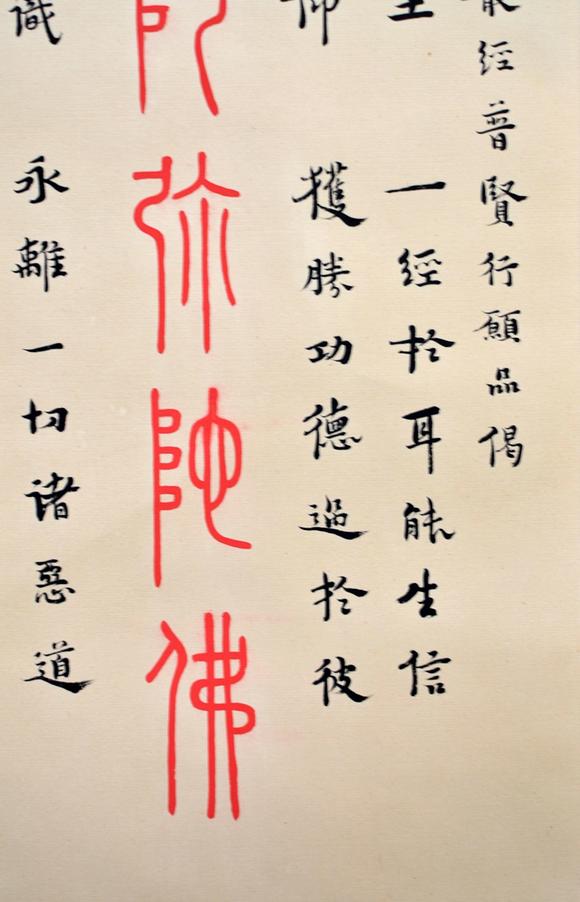 經普賢行願品偈
一經於耳能生信
仰 獲勝功德過於彼
阿弥陀佛
識 永離一切諸惡道